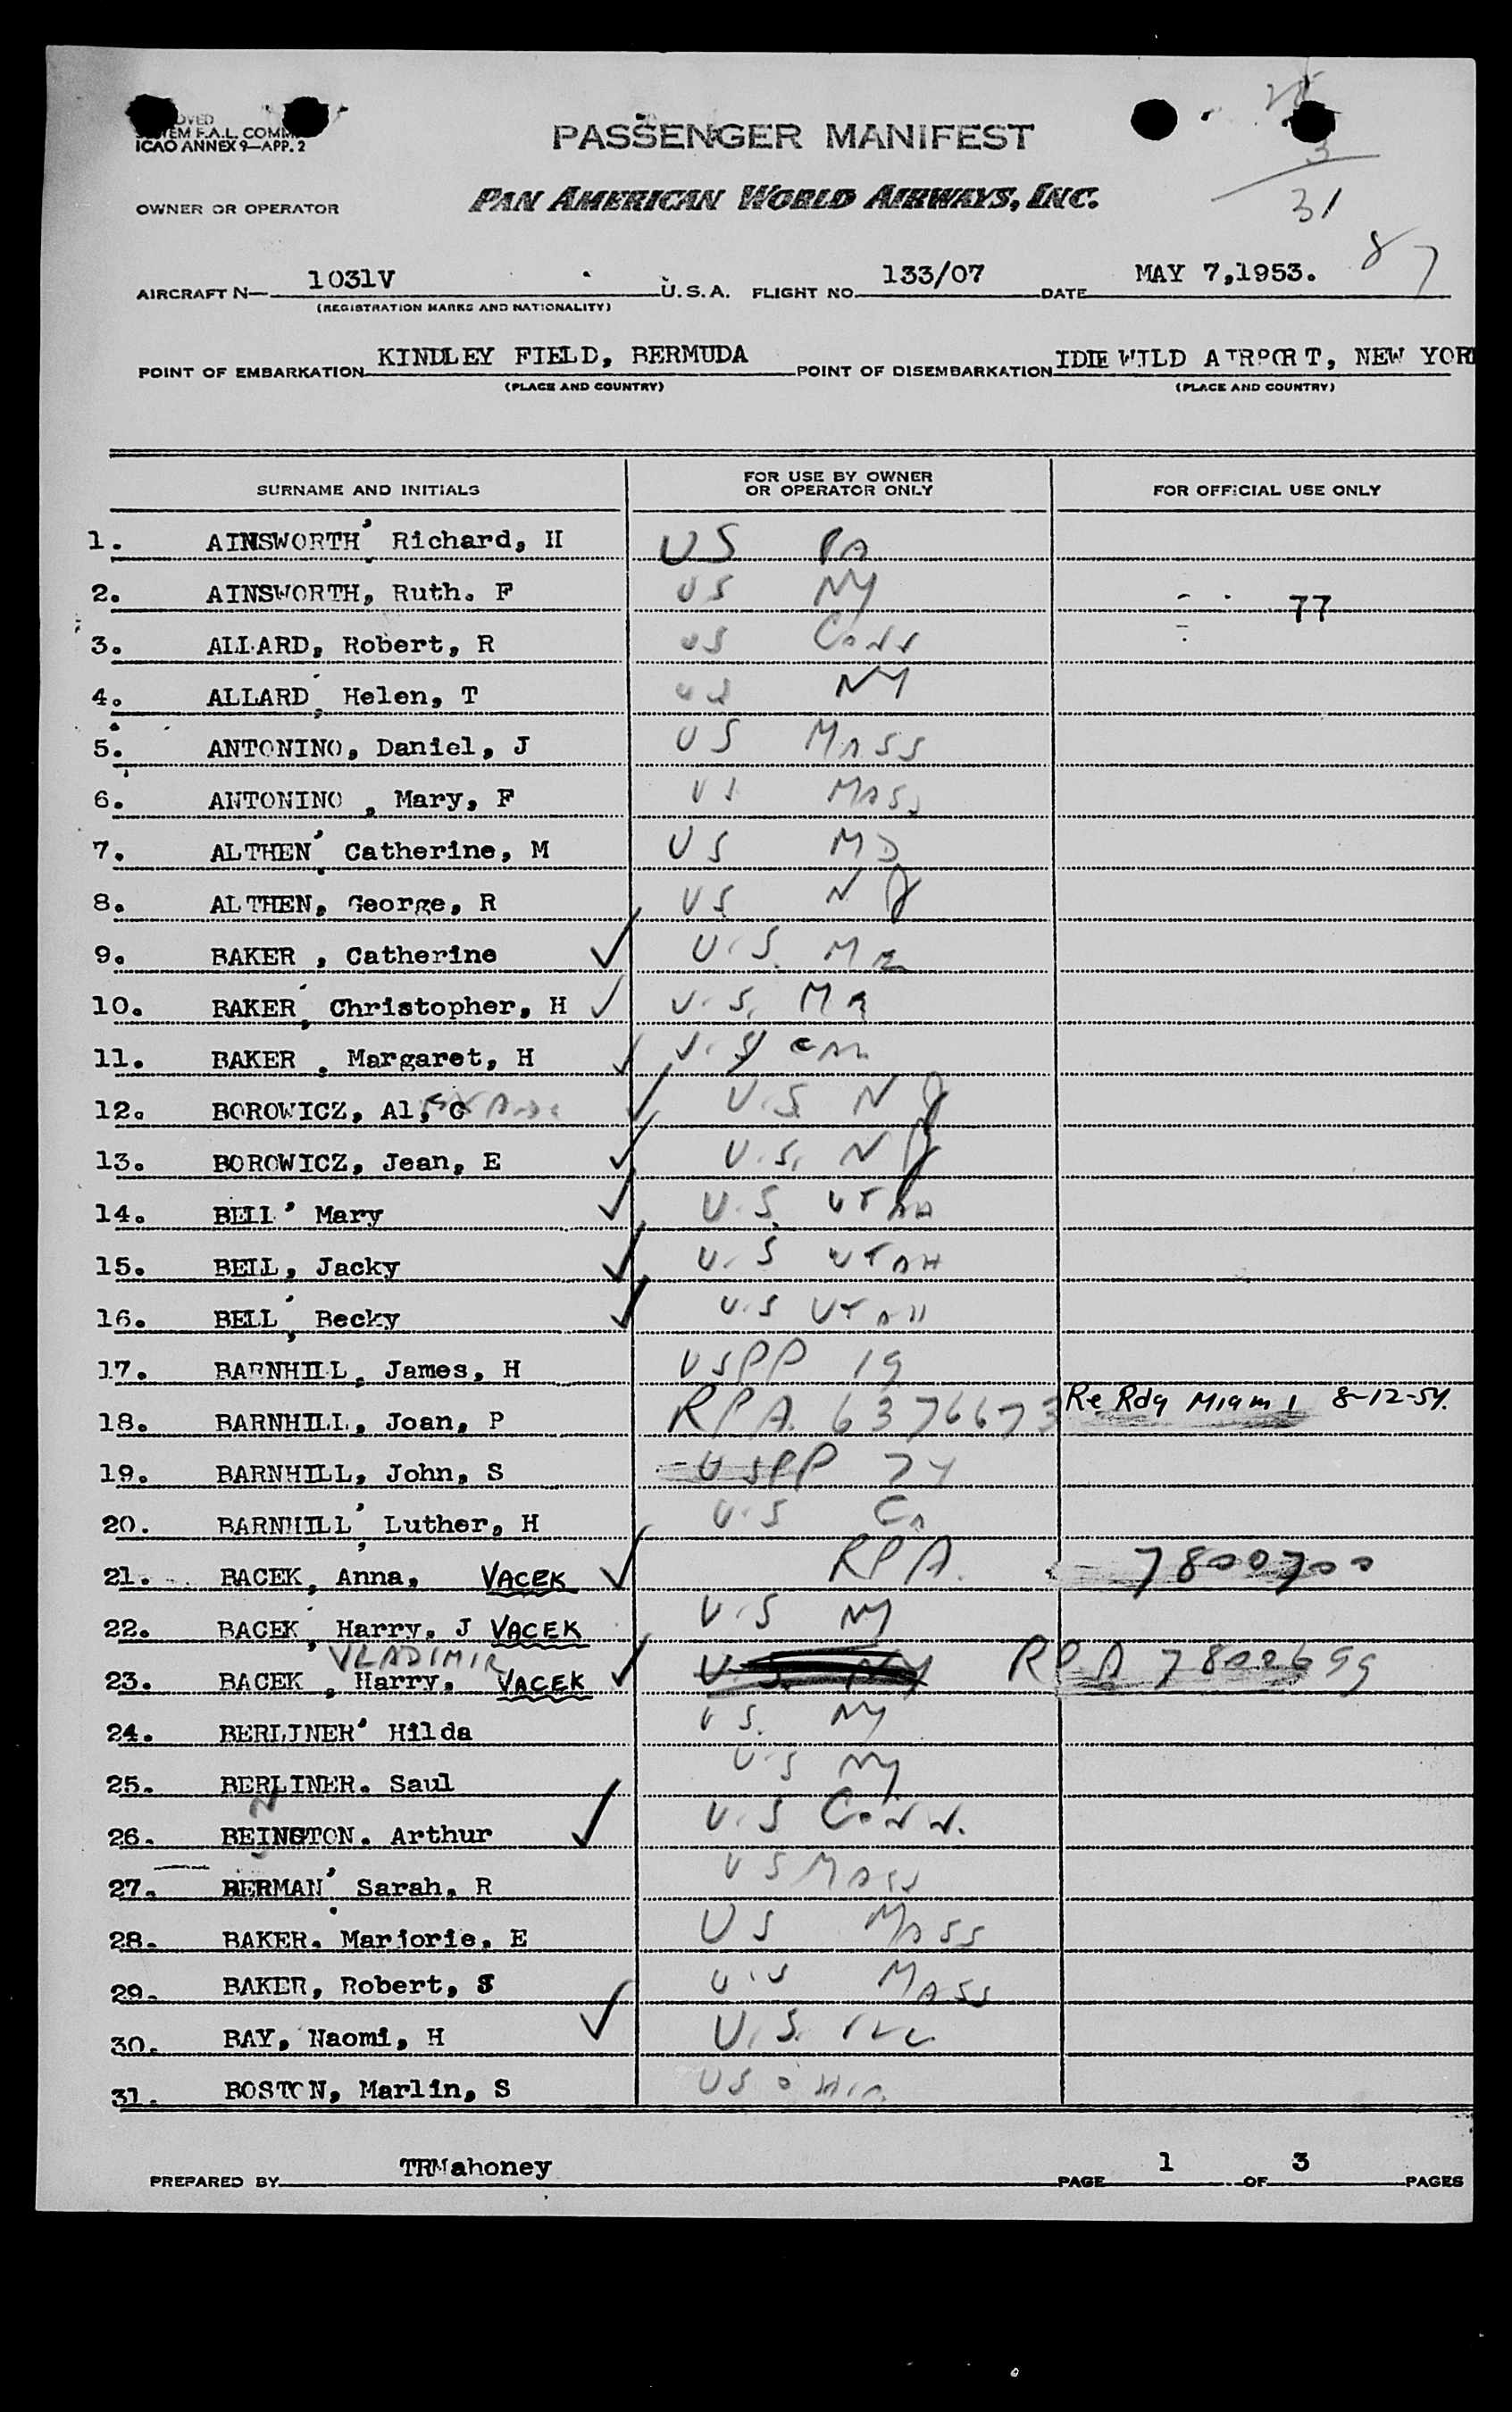 OVED
TEM F.A.L. COMM
ICAO ANNEX 9—APP. 2
PASSENGER MANIFEST
3
31
OWNER OR OPERATOR
PAN AMERICAN WORLD AIRWAYS, INC.
87
AIRCRAFT N— 1031V U.S.A. FLIGHT NO. 133/07 DATE MAY 7,1953.
(REGISTRATION MARKS AND NATIONALITY)
POINT OF EMBARKATION KINDLEY FIELD, BERMUDA POINT OF DISEMBARKATION IDLEWILD AIRPORT, NEW YOR
(PLACE AND COUNTRY) (PLACE AND COUNTRY)
SURNAME AND INITIALS FOR USE BY OWNER OR OPERATOR ONLY FOR OFFICIAL USE ONLY
1. AINSWORTH, Richard, H US PA
2. AINSWORTH, Ruth. F US NY 77
3. ALLARD, Robert, R US Conn
4. ALLARD, Helen, T US NY
5. ANTONINO, Daniel, J US MASS
6. ANTONINO , Mary, F US MASS
7. ALTHEN, Catherine, M US MD
8. ALTHEN, George, R US NJ
9. BAKER , Catherine ✓ U.S. Me
10. BAKER, Christopher, H ✓ U.S. Me
11. BAKER , Margaret, H ✓ U.S
12. BOROWICZ, Al, G ✓ U.S NJ
13. BOROWICZ, Jean, E ✓ U.S. NJ
14. BELL, Mary ✓ U.S. UTAH
15. BELL, Jacky ✓ U.S UTAH
16. BELL, Becky ✓ U.S UTAH
17. BARNHILL, James, H USPP 19
18. BARNHILL, Joan, P RPA 6376673 Re Rdg Miami 8-12-54.
19. BARNHILL, John, S USPP 74
20. BARNHILL, Luther, H U.S Ca
21. BACEK, Anna, VACEK ✓ RPA. 7800700
22. BACEK, Harry. J VACEK U.S NY
VLADIMIR
23. BACEK , Harry. VACEK ✓ U.S. NY RPA 7800699
24. BERLINER, Hilda U.S. NY
25. BERLINER. Saul U.S NY
N
26. BEINGTON. Arthur ✓ U.S Conn.
27. BERMAN, Sarah, R US MASS
28. BAKER. Marjorie, E US MASS
29. BAKER, Robert, S U.S MASS
30. BAY, Naomi, H ✓ U.S. ILL
31. BOSTON, Marlin, S US OHIO
PREPARED BY TRMahoney PAGE 1 OF 3 PAGES